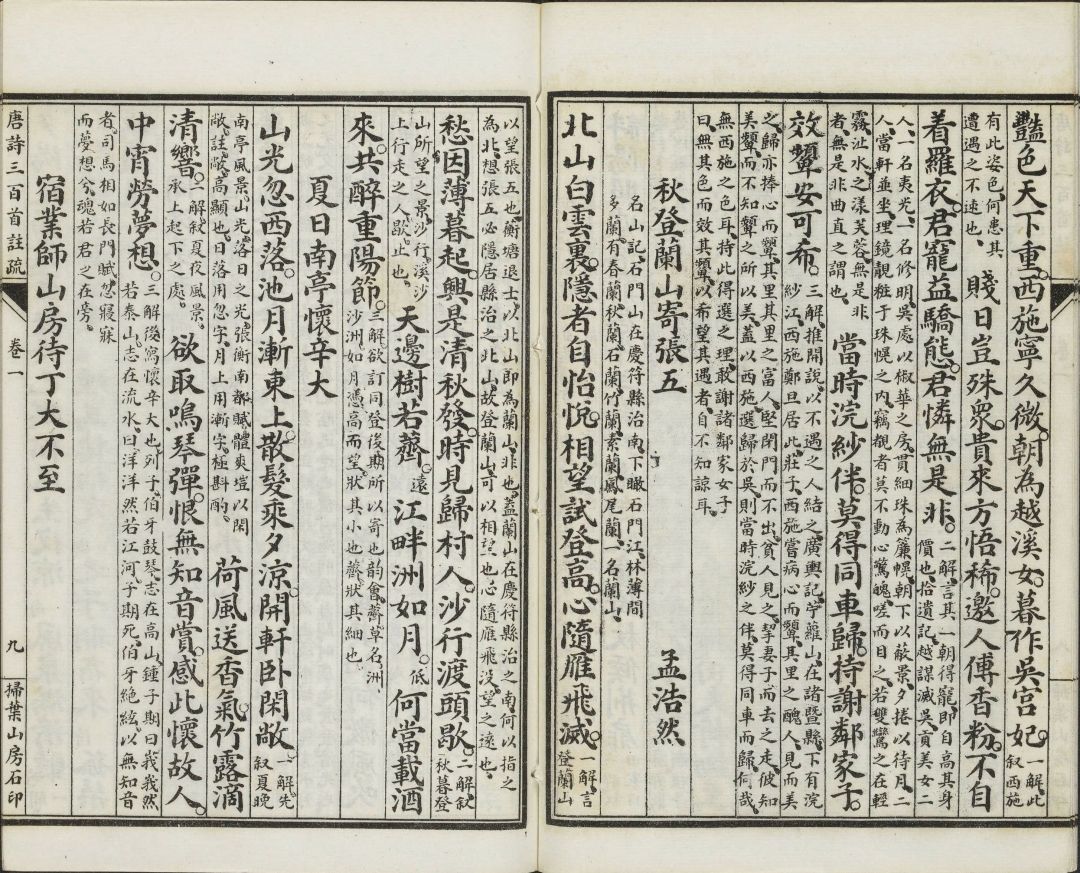 豔色天下重。西施寧久微。朝為越溪女。暮作吳宮妃。一解、此敘西施
有此姿色、何患其遭遇之不速也、 賤日豈殊眾。貴來方悟稀。邀人傅香粉。不自
着羅衣。君寵益驕態。君憐無是非。二解、言其一朝得寵、即自高其身價也、拾遺記、越謀滅吳、貢美女二
人、一名夷光、一名修明、吳處以椒華之房、貫細珠為簾幌、朝下以蔽景、夕捲以待月、二
人當軒並坐、理鏡靚粧于珠幌之內、竊覩者莫不動心驚魄、嗟而目之、若雙鸞之在輕
霧、沚水之漾芙蓉、無是非者、無是非曲直之謂也、 當時浣紗伴。莫得同車歸。持謝鄰家子。
效顰安可希。三解、推開說、以不遇之人結之、廣輿記、苧蘿山、在諸暨縣、下有浣紗江、西施鄭旦居此、莊子、西施嘗病心而顰、其里之醜人、見而美
之、歸亦捧心而顰、其里其里之富人、堅閉門而不出、貧人見之、挈妻子而去之走、彼知
美顰、而不知顰之所以美、蓋以西施選歸於吳、則當時浣紗之伴、莫得同車而歸、何哉、
無西施之色耳、持此得選之理、敢謝諸鄰家女子
曰、無其色而效其顰、以希望其遇者、自不知諒耳。
秋登蘭山寄張五 孟浩然
名山記、石門山、在慶符縣治南、下瞰石門江、林薄間
多蘭、有春蘭、秋蘭、石蘭、竹蘭、素蘭、鳳尾蘭、一名蘭山、
北山白雲裏。隱者自怡悅。相望試登高。心隨雁飛滅。一解、言登蘭山
以望張五也、衡塘退士、以北山即為蘭山、非也、蓋蘭山在慶符縣治之南、何以指之
為北、想張五必隱居縣治之北山、故登蘭山、可以相望也、心隨雁飛沒、望之遠也、
愁因薄暮起。興是清秋發。時見歸村人。沙行渡頭歇。二解、敘秋暮登
山所望之景、沙行、溪沙上行走之人、歇、止也、 天邊樹若薺。遠 江畔洲如月。低 何當載酒
來。共醉重陽節。三解、欲訂同登後期、所以寄也、韵會、薺、草名、洲、沙洲、如月、憑高而望、狀其小也、薺、狀其細也、
夏日南亭懷辛大
山光忽西落。池月漸東上。散髮乘夕涼。開軒卧閑敞。一解、先敘夏晚
南亭風景、山光、落日之光、張衡南都賦、體爽塏以閑敞、註、敞、高顯也、日落用忽字、月上用漸字、極斟酌、 荷風送香氣。竹露滴
清響。二解、敘夏夜風景、承上起下之處、 欲取鳴琴彈。恨無知音賞。感此懷故人。
中宵勞夢想。三解、後寫懷辛大也、列子、伯牙鼓琴、志在高山、鍾子期曰、峩峩然若泰山、志在流水、曰、洋洋然若江河、子期死、伯牙絶絃、以無知音
者、司馬相如長門賦、忽寢寐
而夢想兮、魂若君之在旁。
宿業師山房待丁大不至
唐詩三百首註疏 卷一 九 掃葉山房石印